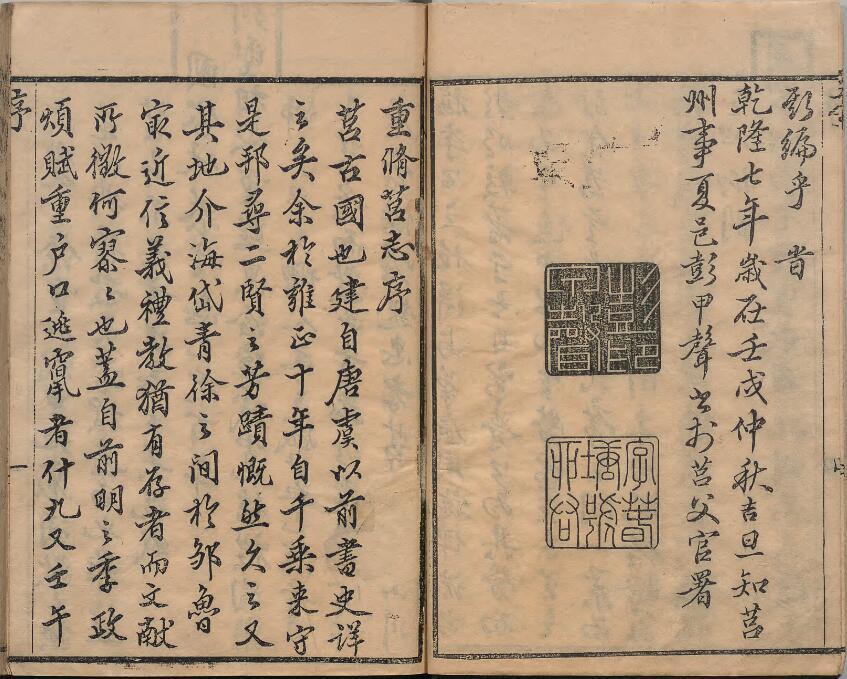 編乎 旹
乾隆七年歲在壬戌仲秋吉旦知莒
州事夏邑彭甲聲書於莒父官署
重脩莒志序
莒古國也建自唐虞以前書史詳
之矣余於雍正十年自千乘来守
是邦尋二賢之芳蹟慨然久之又
其地介海岱青徐之間於鄒魯
冣近信義禮教猶有存者而文献
所徵何寥〻也蓋自前明之季政
煩賦重户口逃竄者什九又壬午
序 一